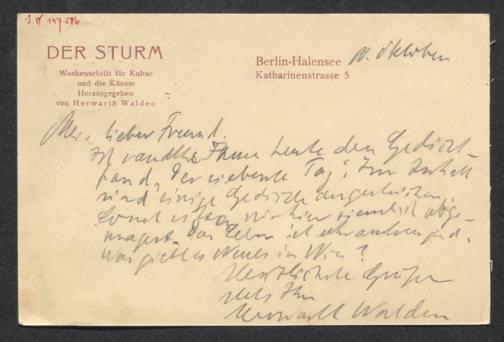 I.N. 147.586
DER STURM
Wochenschrift für Kultur
und die Künste
Herausgegeben
von Herwarth Walden
Berlin-Halensee 10. Oktober
Katharinenstrasse 5
Mein lieber Freund.
Ich sandte Ihnen heute den Gedicht-
band „Der siebente Tag". Im Inhalt
sind einige Gedichte angestrichen.
Sonst ist man hier ziemlich
Das Leben ist sehr anstrengend.
Was giebt es Neues in Wien?
Herzlichste Grüße
stets Ihr
Herwarth Walden